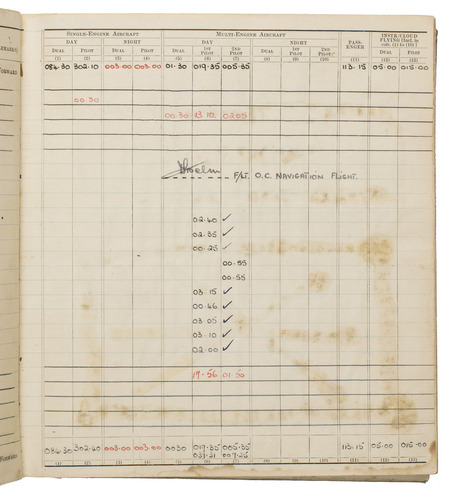 SINGLE-ENGINE AIRCRAFT MULTI-ENGINE AIRCRAFT PASS-ENGER INSTR/CLOUD FLYING [Incl. in cols. (1) to (10)]
DAY NIGHT DAY NIGHT
DUAL PILOT DUAL PILOT DUAL 1ST PILOT 2ND PILOT DUAL 1ST PILOT 2ND PILOT DUAL PILOT
(1) (2) (3) (4) (5) (6) (7) (8) (9) (10) (11) (12) (13)
FORWARD 084.30 302.10 003.00 003.00 01.30 019.35 005.35 113.15 05.00 015.00
00.30
00.30 13.10 02.05
F/LT. O.C. NAVIGATION FLIGHT.
02.40 ✓
02.35 ✓
00.25 ✓
00.55
00.55
03.15 ✓
00.46 ✓
03.05 ✓
03.10 ✓
02.00 ✓
17.56 01.50
084.30 302.40 003.00 003.00 0030 019.35 005.35 113.15 05.00 015.00
037.31 007.25
(1) (2) (3) (4) (5) (6) (7) (8) (9) (10) (11) (12) (13)